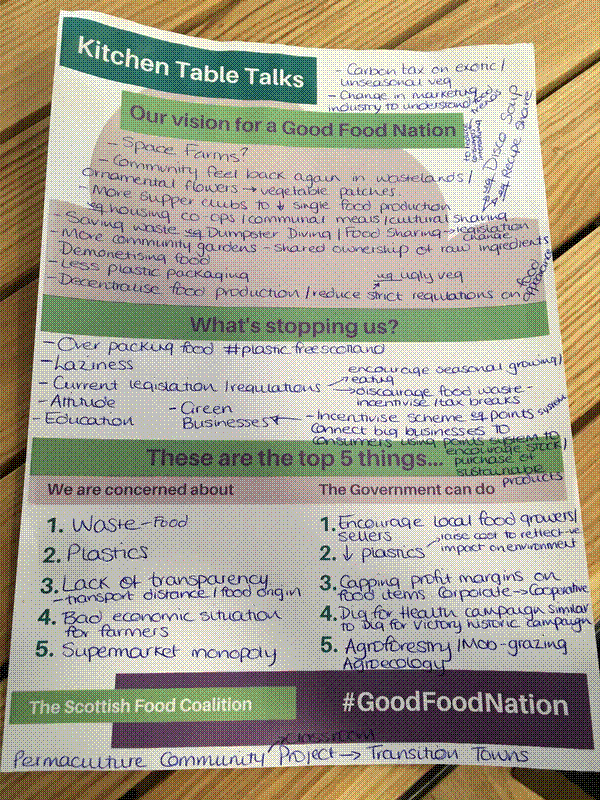 Kitchen Table Talks
- Carbon tax on exotic/
unseasonal veg
- Change in marketing
industry to understand food
trends
Our vision for a Good Food Nation
→ eg Disco Soup
→ eg Recipe share
- Space Farms?
- Community feel back again in wastelands/
ornamental flowers → vegetable patches.
- More supper clubs to ↓ single food production
eg housing co-ops/communal meals/cultural sharing
- Saving waste eg Dumpster Diving/Food Sharing → legislation
change
- More community gardens - shared ownership of raw ingredients
Demonetising food
- Less plastic packaging
eg ugly veg
- Decentralise food production/reduce strict regulations on food
appearance
What's stopping us?
- Over packing food #plasticfreescotland
- Laziness
encourage seasonal growing/
eating
- Current legislation/regulations
→ discourage food waste -
incentivise/tax breaks
- Attitude
- Green
Businesses
- Education
- Incentivise scheme eg points system
connect big businesses to
consumers using points system to
encourage stock/
purchase of
sustainable
products
These are the top 5 things...
We are concerned about
1. Waste - Food
2. Plastics
3. Lack of transparency
- transport distance/food origin
4. Bad economic situation
for farmers
5. Supermarket monopoly
The Government can do
1. Encourage local food growers/
sellers
2. ↓ plastics
raise cost to reflect -ve
impact on environment
3. Capping profit margins on
food items Corporate → Cooperative
4. Dig for Health campaign similar
to Dig for Victory historic campaign
5. Agroforestry/Mob-grazing
Agroecology
The Scottish Food Coalition
#GoodFoodNation
classroom
Permaculture Community Project → Transition Towns